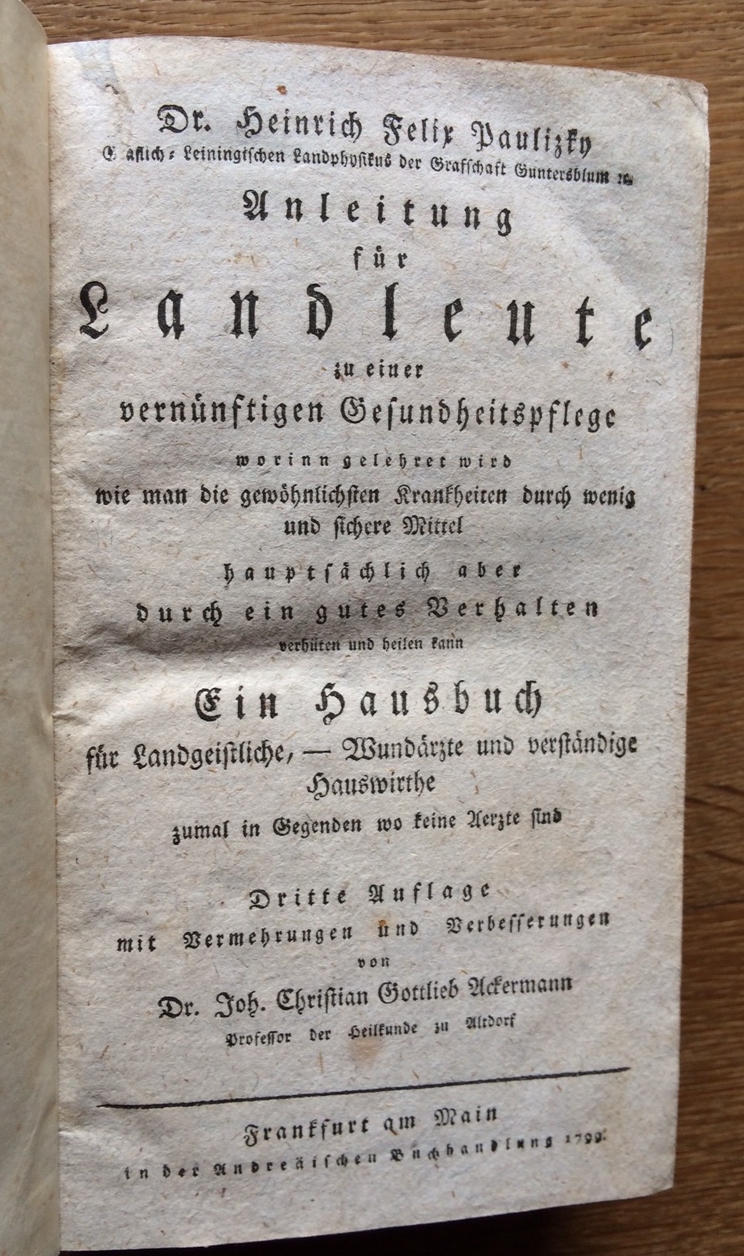 Dr. Heinrich Felix Paulizky
G aflich⸗ Leiningiſchen Landphyſikus der Grafſchaft Guntersblum ꝛc.
Anleitung
für
Landleute
zu einer
vernünftigen Geſundheitspflege
worinn gelehret wird
wie man die gewöhnlichſten Krankheiten durch wenig
und ſichere Mittel
hauptſächlich aber
durch ein gutes Verhalten
verhüten und heilen kann
Ein Hausbuch
für Landgeiſtliche, — Wundärzte und verſtändige
Hauswirthe
zumal in Gegenden wo keine Aerzte ſind
Dritte Auflage
mit Vermehrungen und Verbeſſerungen
von
Dr. Joh. Chriſtian Gottlieb Ackermann
Profeſſor der Heilkunde zu Altdorf
Frankfurt am Main
in der Andreäiſchen Buchhandlung 1799.